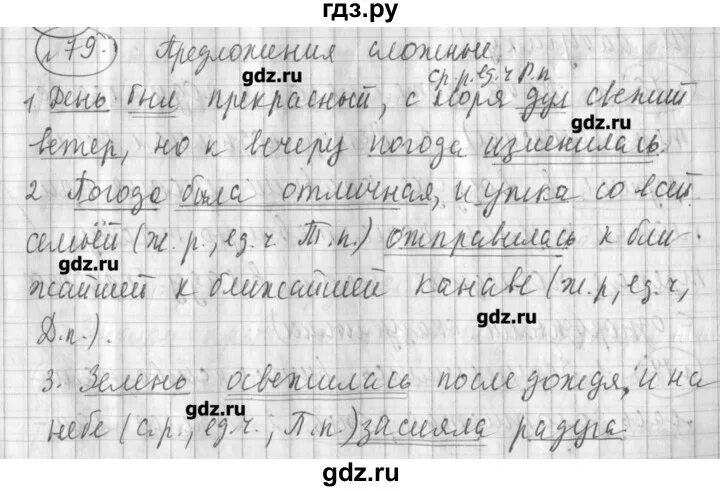 гдз.ру
№79. Предложения сложные.
gdz.ru
ср.р.ед.ч Р.п
1 День был прекрасный, с моря дул свежий
gdz.ru
ветер, но к вечеру погода изменилась.
2 Погода была отличная, и утка со всей
семьёй (ж.р., ед.ч. Т.п.) отправилась к бли-
gdz.ru
жайшей к ближайшей канаве (ж.р, ед.ч,
gdz.ru
Д.п.).
3. Зелень освежилась после дождя, и на
gdz.ru
небе (с.р., ед.ч., П.п.) засияла радуга.
gdz.ru